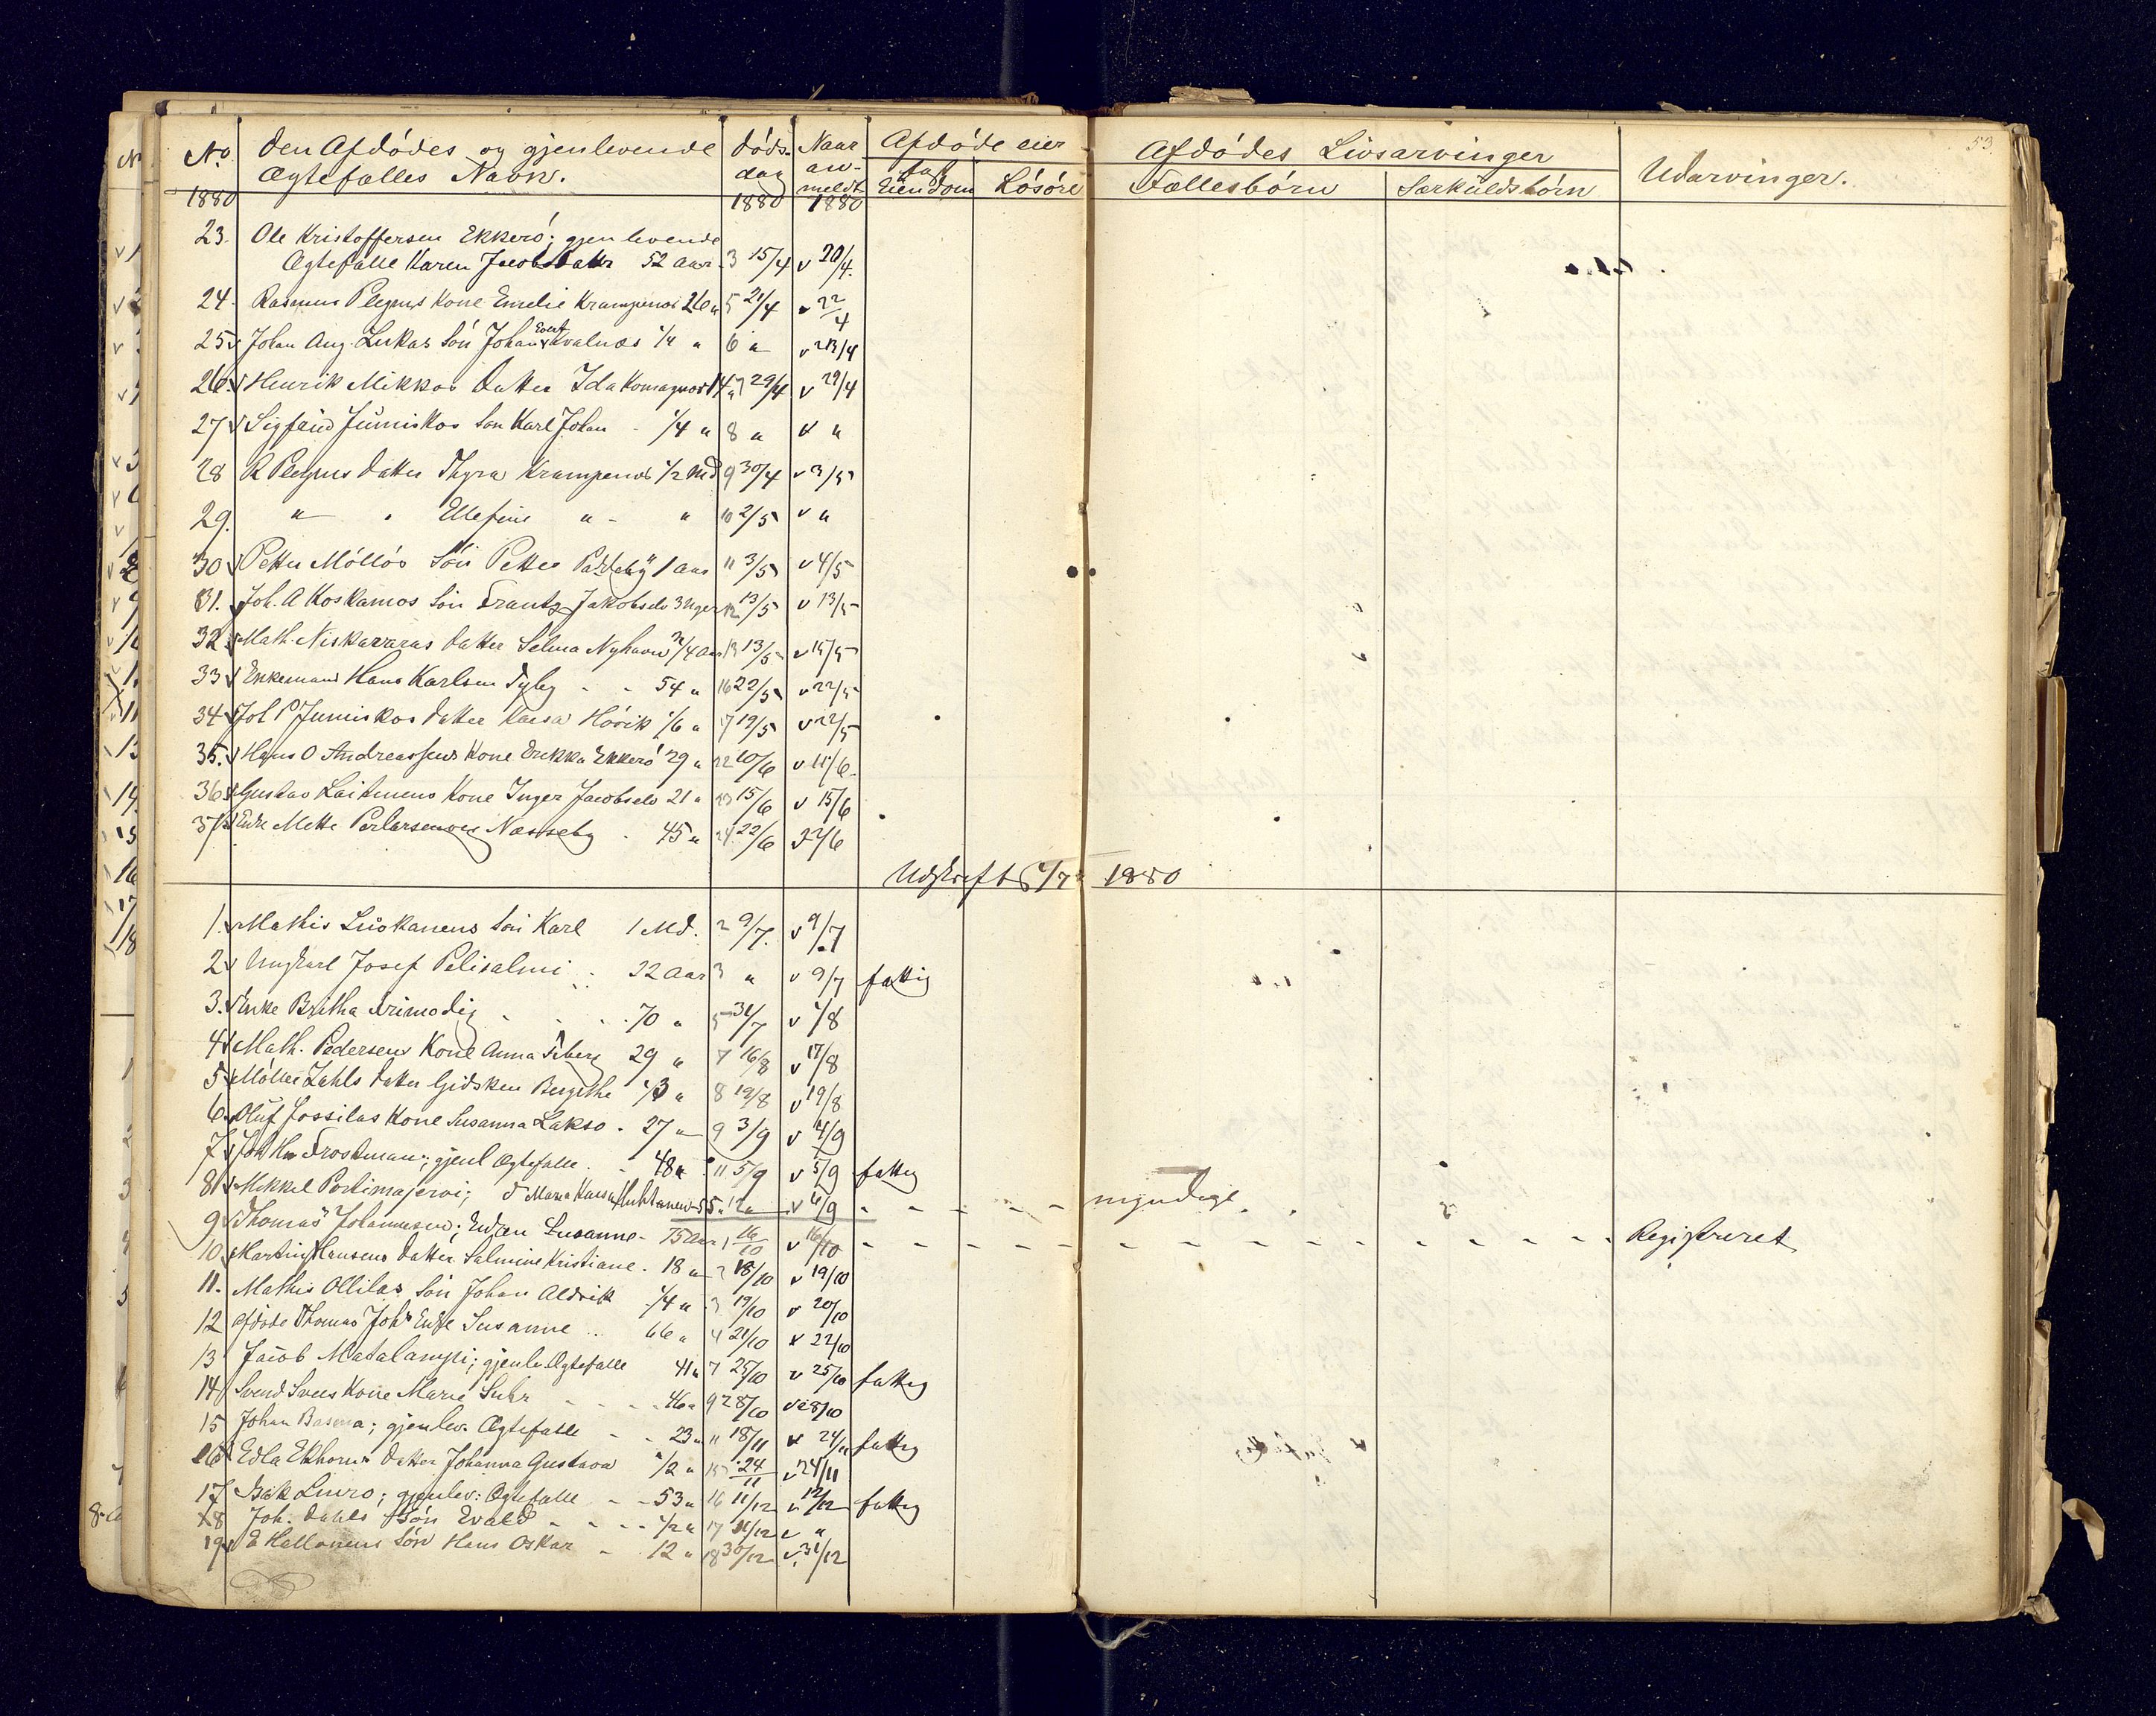 53.
No. Den Afdødes og gjenlevende Døds- Naar Afdøde eier Afdødes Livsarvinger Udarvinger.
Ægtefælles Navn. dag an- fast
meldt Eiendom Løsøre Fællesbørn Særkuldsbørn
1880 1880 1880
23. Ole Kristoffersen Ekkerø; gjenlevende
Ægtefælle Karen Jacobsdatter 52 Aar 3 15/4 v 20/4.
24. Rasmus Kone Emelie Krampenæs 26 " 5 21/4 v 22/4
25 v Johan Aug. Lukas Søn Johan Evert Kvalnæs 1/4 " 6 " v 23/4
26. v Henrik Mikkos Datter Ida Komagnæs 14 " 7 29/4 v 29/4
27 v Sigfrid Juniskos Søn Karl Johan - 1/4 " 8 " v "
28 R Datter Thyra Krampenæs 1/2 Md 9 30/4 v 3/5
29. " " Ellefine " - " 10 2/5 v "
30 v Petter Møllös Søn Petter Paddeby 1 Aar 11 3/5 v 4/5
31. v Joh. A Koskamos Søn Frantz Jakobselv 3 Uger 12 13/5 v 13/5
32 v Math. Niskavaras Datter Selma Nyhavn 3/4 Aar 13 13/5 v 15/5
33 v Enkemand Hans Karlsen Syby - - 54 " 16 22/5 v 22/5
34 v Joh P Juniskos Datter Kaisa Høvik 1/6 " 17 19/5 v 22/5
35. v Hans O Andreassens Kone Erikka Ekkerø 29 " 22 10/6 v 11/6
36 v Gustav Laitinens Kone Inger Jacobselv 21 " 23 15/6 v 15/6
37 v Enke Mette Perlarsen Næsseby - 45 " 24 22/6 22/6
Udskrift 1/7 1880
1. v Mathis Luokanens Søn Karl 1 Md. 2 9/7. v 9/7
2 v Ungkarl Josef Pelisalmi - 22 Aar 3 " v 9/7 fattig
3. v Enke Britha Frimodig - - - 70 " 5 31/7 v 1/8
4 v Math. Pedersens Kone Anna Siberg 29 " 7 16/8 v 17/8
5 v Møller Zahls Datter Gidsken Bergithe 1/3 " 8 19/8 v 19/8
6. v Oluf Jossilas Kone Susanna Lakso - 27 " 9 3/9 v 4/9
7 v Joh Hn Frostman; gjenl Ægtefælle - - 48 " 11 5/9 v 5/9 fattig
8 v Mikkel Portimojervi; d Maria Kaisa Huhtanen 55 " 12 " v 6/9 - - - - - myndige
9 v Thomas Johannesen; Enken Susanne - 75 Aar 1 16/10 v 16/10 - - - - - - - - - - - Registreret
10 v Martin Hansens Datter Salmine Kristiane - 18 " 2 18/10 v 19/10
11. Mathis Ollilas Søn Johan Aldrik 1/4 " 3 19/10 v 20/10
12 Afdøde Thomas Johs Enke Susanne - 66 " 4 21/10 v 22/10
13 Jacob Matalampi; gjenlev Ægtefælle 41 " 7 25/10 v 25/10 fattig
14 Svend Svees Kone Marie Suhr - - - 46 " 9 28/10 v 28/10
15 Johan Basma; gjenlev. Ægtefælle - - 23 " 11 18/11 v 24/11 fattig
16 Edla Ekhorns Datter Johanna Gustava 1/2 " 15 24/11 v 24/11
17 Isak Liuro; gjenlev: Ægtefælle - - 53 " 16 11/12 v 12/12 fattig
18 Joh. Dahls Søn Evald - - - - 1/2 " 17 11/12 v "
19 v E Hallonens Søn Hans Oskar - 12 " 18 30/12 v 31/12